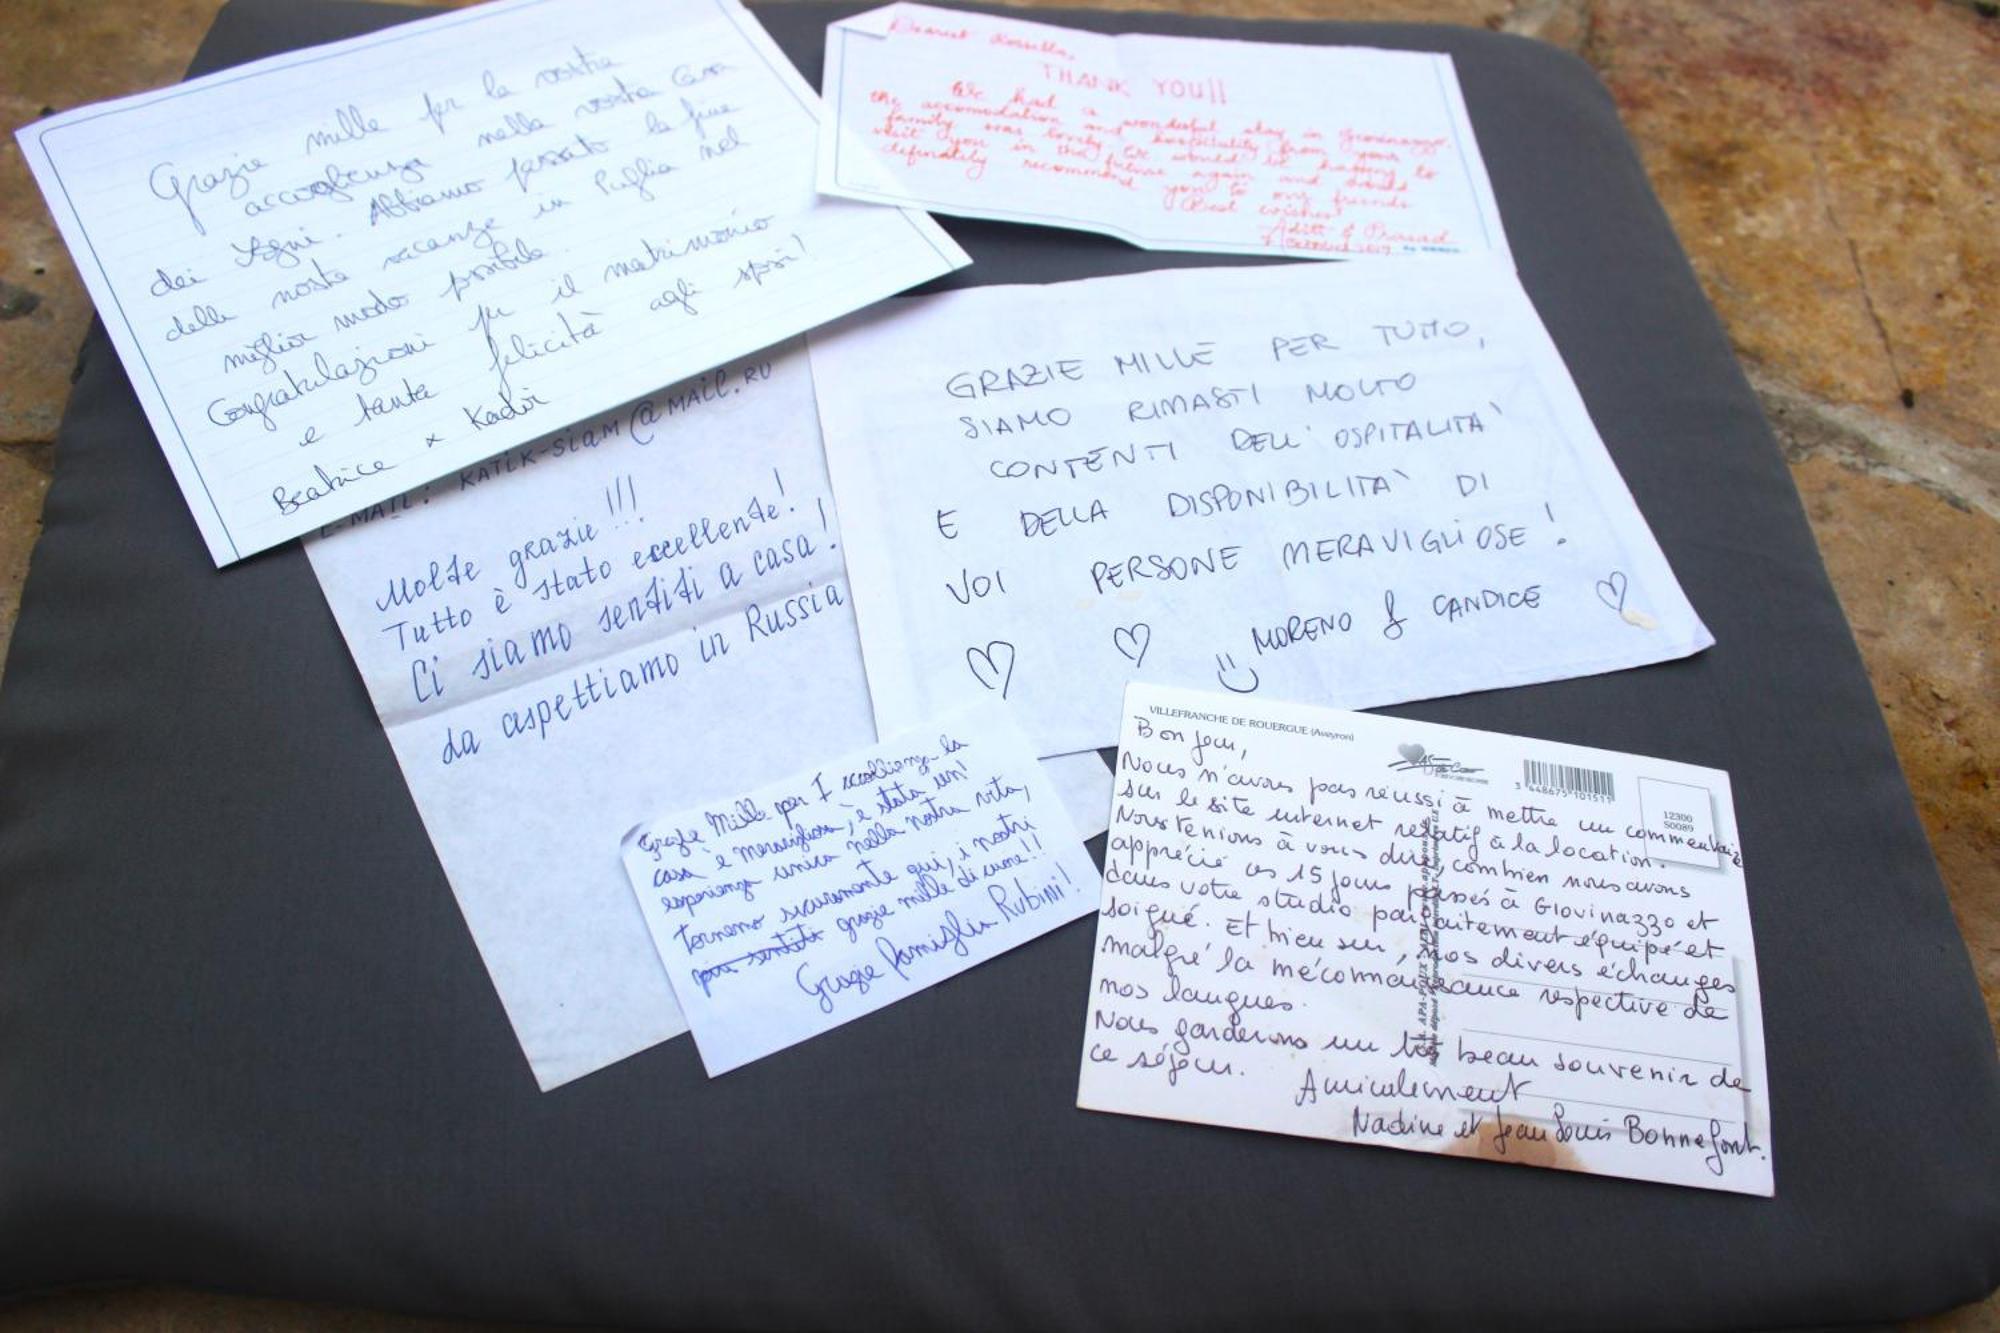 Grazie mille per la vostra
accoglienza nella vostra Casa
dei Sogni. Abbiamo passato la fine
delle nostre vacanze in Puglia nel
miglior modo possibile.
Congratulazioni per il matrimonio
e tanta felicità agli sposi!
Beatrice & Kadir
Dearest Rossella,
THANK YOU!!
We had a wonderful stay in Giovinazzo.
the accomodation and hospitality from your
family was lovely. We would be happy to
visit you in the future again and would
definately recommend you to our friends
Best wishes!
Aditi & Prasad
October 2017
E-MAIL: KATIK-SIAM@MAIL.RU
Molte grazie!!!
Tutto è stato eccellente!
Ci siamo sentiti a casa!
da aspettiamo in Russia
GRAZIE MILLE PER TUTTO,
SIAMO RIMASTI MOLTO
CONTENTI DELL'OSPITALITA'
E DELLA DISPONIBILITA' DI
VOI PERSONE MERAVIGLIOSE!
MORENO & CANDICE
Grazie Mille per l'accoglienza la
casa è meravigliosa, è stata un'
esperienza unica nella nostra vita,
torneremo sicuramente qui, i nostri
più sentiti grazie mille di cuore!!
Grazie famiglia Rubini!
VILLEFRANCHE DE ROUERGUE (Aveyron)
3 448675 101511
12300
S0089
Bonjour,
Nous n'avons pas réussi à mettre un commentaire
sur le site internet relatif à la location.
Nous tenions à vous dire, combien nous avons
apprécié ces 15 jours passés à Giovinazzo et
dans votre studio parfaitement équipé et
soigné. Et bien sur, nos divers échanges
malgré la méconnaissance respective de
nos langues.
Nous garderons un très beau souvenir de
ce séjour.
Amicalement
Nadine et Jean Louis Bonnefont.